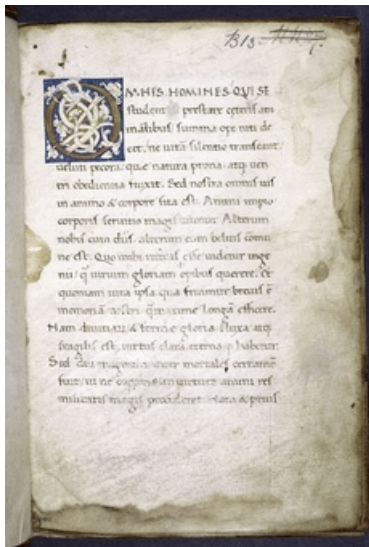 OMNIS HOMINES QVI SE
student prestare ceteris ani
malibus summa ope niti de
cet, ne uitā silentio transeant
ueluti pecora, que natura prona, atq; uen
tri obedientia finxit. Sed nostra omnis uis
in animo & corpore sita est. Animi imperio
corporis seruitio magis utimur. Alterum
nobis cum diis, alterum cum beluis comu
ne est. Quo mihi rectius esse uidetur inge
nii, q̄ uirium gloriam opibus querere. Et
quoniam uita ipsa, qua fruimur breuis ē
memoriā nostri q̄ maxime longā efficere.
Nam diuitiarū & forme gloria fluxa atq;
fragilis est, uirtus clara eterna q; habetur.
Sed diu magnum inter mortales certamē
fuit, ui ne corporis an uirtute animi res
militaris magis procederet. & prius